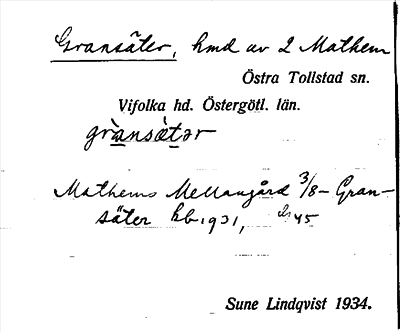 Gransäter, hmd av 2 Mathem
Östra Tollstad sn.
Vifolka hd. Östergötl. län.
grànsä̀tər
Mathems Mellangård 3/8 - Gran-
säter hb 1931, 45
Sune Lindqvist 1934.